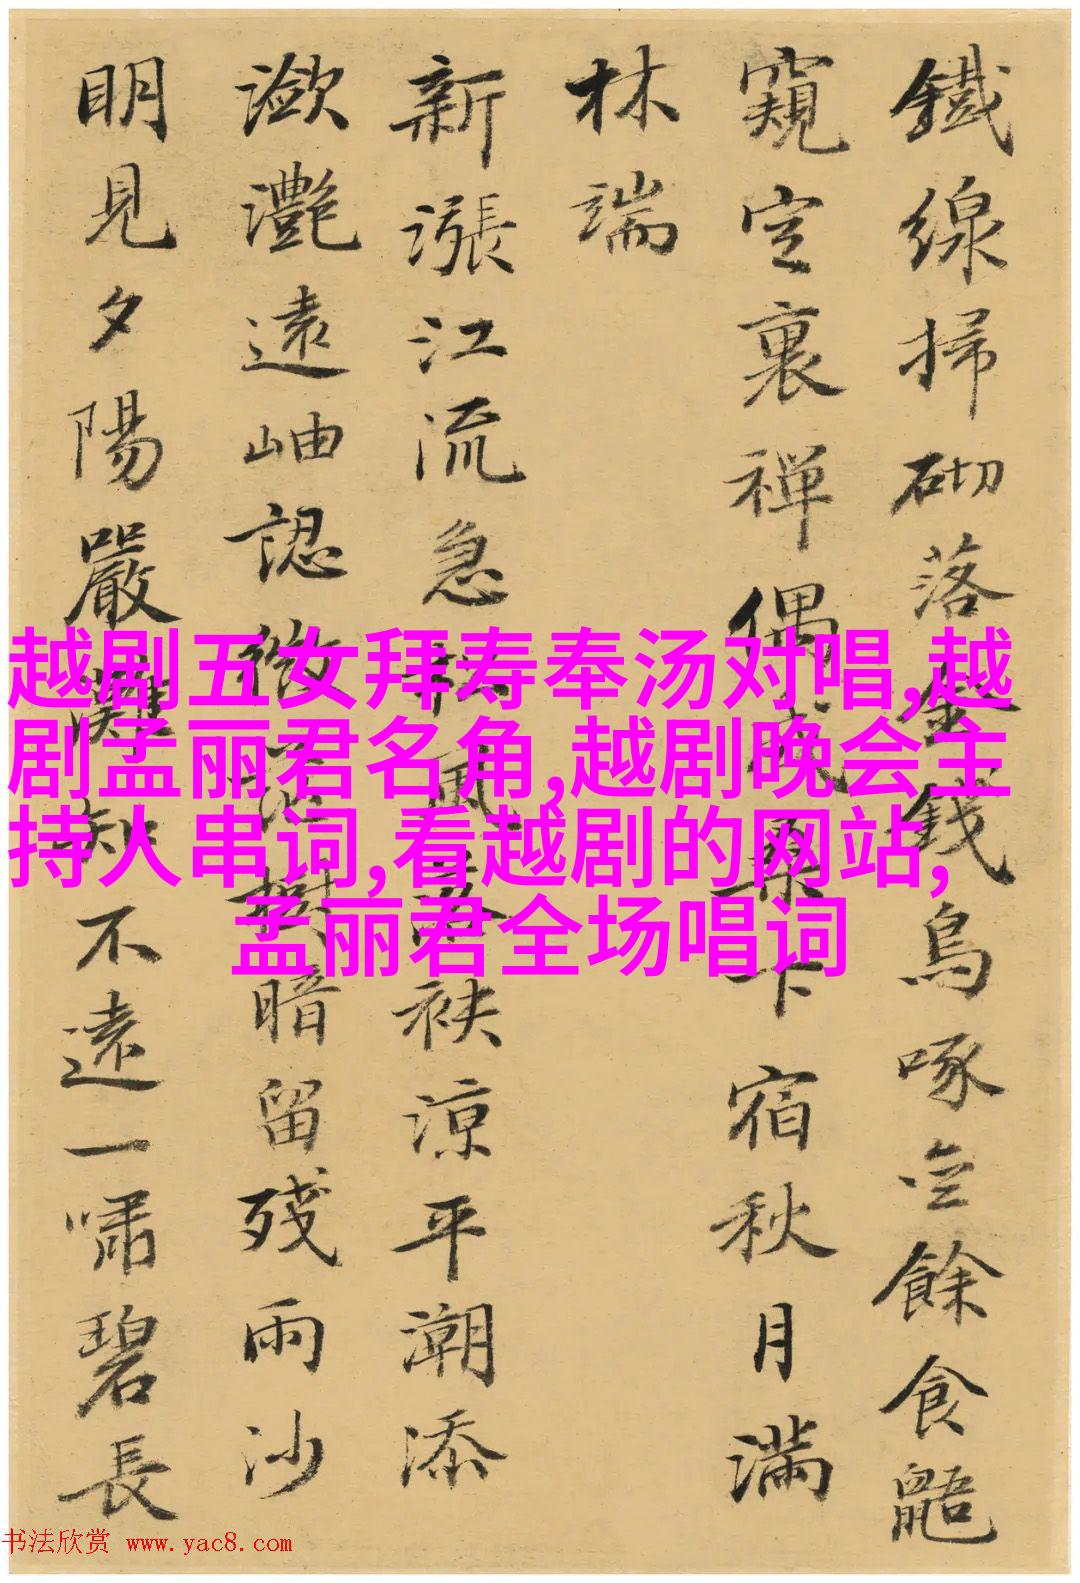 鐵線掃砌落金錢烏啄空餘食鼯
窺定裏禪偶成桑下宿秋月滿
林端
新漲江流急秋風落袂涼平潮添
瀲灩遠岫認微茫樹暗留殘雨沙
明見夕陽嚴灘知不遠一嘯碧長
越剧五女拜寿奉汤对唱,越
剧孟丽君名角,越剧晚会主
持人串词,看越剧的网站,
孟丽君全场唱词
书法欣赏 www.yac8.com